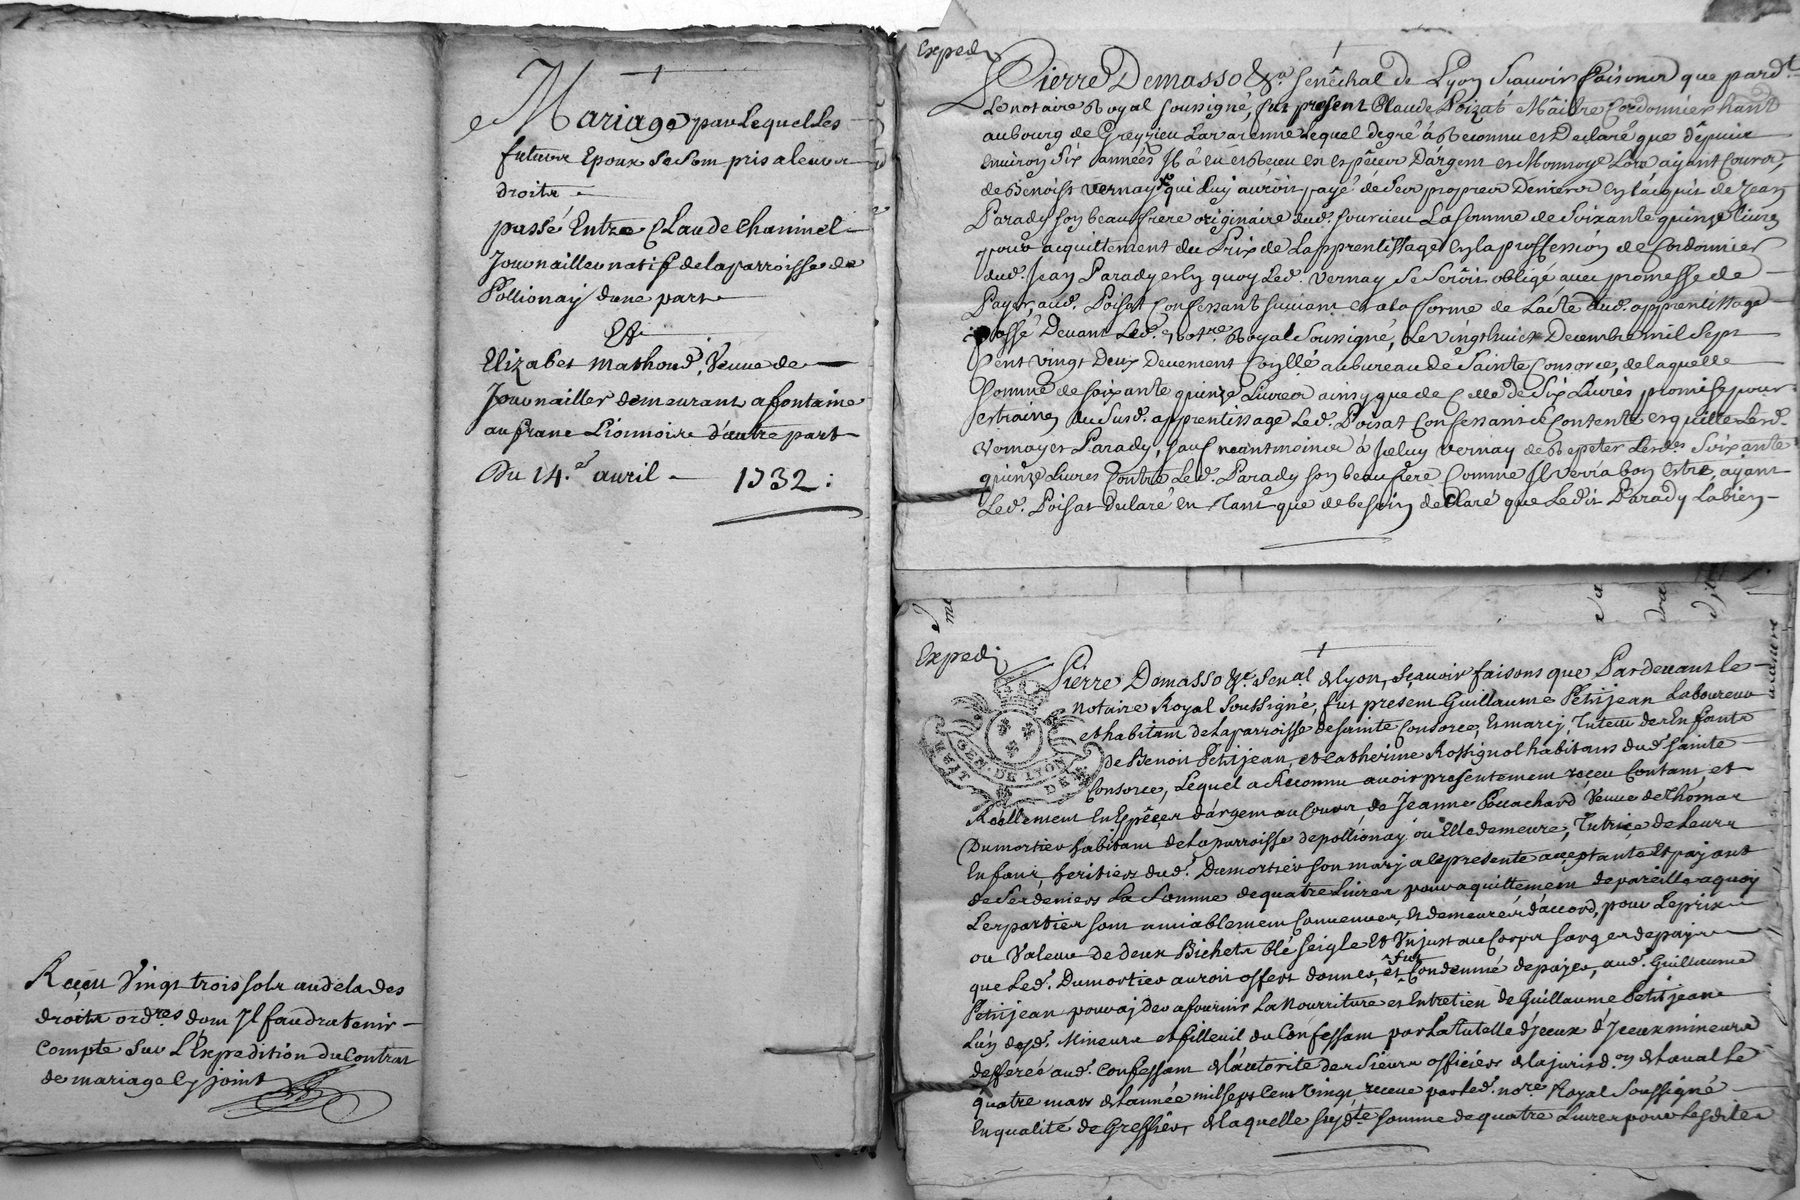 Mariage par Lequel Les
futurs Epoux se sont pris a leurs
droits
passé Entre Claude Chaninel
Journaillier natif de la parroisse de
Pollionay d'une part
Et
Elizabet mathoud, Veuve de
Journaillier demeurant a fontaine
au franc Lionnois d'autre part
Du 14.e avril 1732 :
Reçeu Vingt trois sols au dela des
droits ordres dont Il faudra tenir
compte sur L'Expedition du Contrat
de mariage Cy joint
Exped
Pierre Demasso &a. senêchal de Lyon Scavoir faisons que pard.t
Le notaire Royal soussigné, fut présent Claude Poizat Mâitre Cordonnier hant
au bourg de Greyzieu La varenne Lequel de gré à Reconnu et Declaré que dêpuis
environ Six années Il à eu et Receu en espêces D'argent et Monnoye Lors ayant Cours,
de Benoist Vernay qui Luy auroit payé de Ses propres Deniers en L'acquit de Jean
Parady son beau frere originaire dud. Sourcieu La somme de Soixante quinze livres
pour acquittement du Prix de L'apprentissage en La proffession de Cordonnier
dud. Jean Parady et en quoy Led. Vernay Se Seroit obligé avec promesse de
Payer, aud. Poisat Confessant suivant et a la forme de L'acte dud. apprentissage
passé Devant Led. Not.re Royal Soussigné, Le vingt huict Decembre mil Sept
Cent vingt Deux Deuement Coñllé au bureau de Sainte Consorce, de laquelle
Somme de soixante quinze Livres ainsy que de Celle de Six Livres promise pour
estraines du Susd. apprentissage Led. Poisat Confessant se Contente et quitte Lesd.
Vernay et Parady, sauf neantmoins à Iceluy Vernay de Repeter Lesdes Soixante
quinze Livres Contre Led. Parady son beau frere Comme Il verra bon Estre, ayant
Led. Poisat Declaré en Tant que de besoin declaré que Ledit Parady La bien
Exped
Pierre Demasso &c. Sen.al de Lyon, Sçavoir faisons que Pardevant le
Notaire Royal Soussigné, fut present Guillaume Petitjean Laboureur
et habitant de La parroisse de Sainte Consorce, Et mary, Tuteur des Enfants
de Benoit Petitjean, et Catherine Rossignol habitans dud. Sainte
Consorce, Lequel a Reconnu avoir presentement reçeu Contant, et
Reellement en Espêces d'argent au Cours, de Jeanne Pocachard Veuve de Thomas
Dumortier habitant de La parroisse de pollionay ou Elle demeure, Tutrice de Leurs
Enfans, heritiers dud. Dumortier son mary a ce presente acceptante Et payant
de Ses deniers La Somme de quatre Livres pour aquittement de pareille a quoy
Les parties sont amiablement Convenues, et demeurées d'accord, pour Le prix
ou Valeur de deux Bichets blé seigle Et Un just au Corps sarge de pays
que Led. Dumortier auroit offert donner, et fut Condemné de payer, aud. Guillaume
Petitjean pour ayder a fournir La nourriture et Entretien de Guillaume Petitjean
L'un desd. Mineurs et filleuil du Confessant par La Tutelle d'yceux d'yceux mineurs
defferée aud. Confessant de L'autorité des Sieurs officiers de La jurisd.on de Laval Le
quatre mars de L'année mil sept cens Vingt receue par Led. no.re Royal Soussigné
En qualité de Greffier, de laquelle susd.te somme de quatre Livres pour Lesdites
GEN. DE LYON